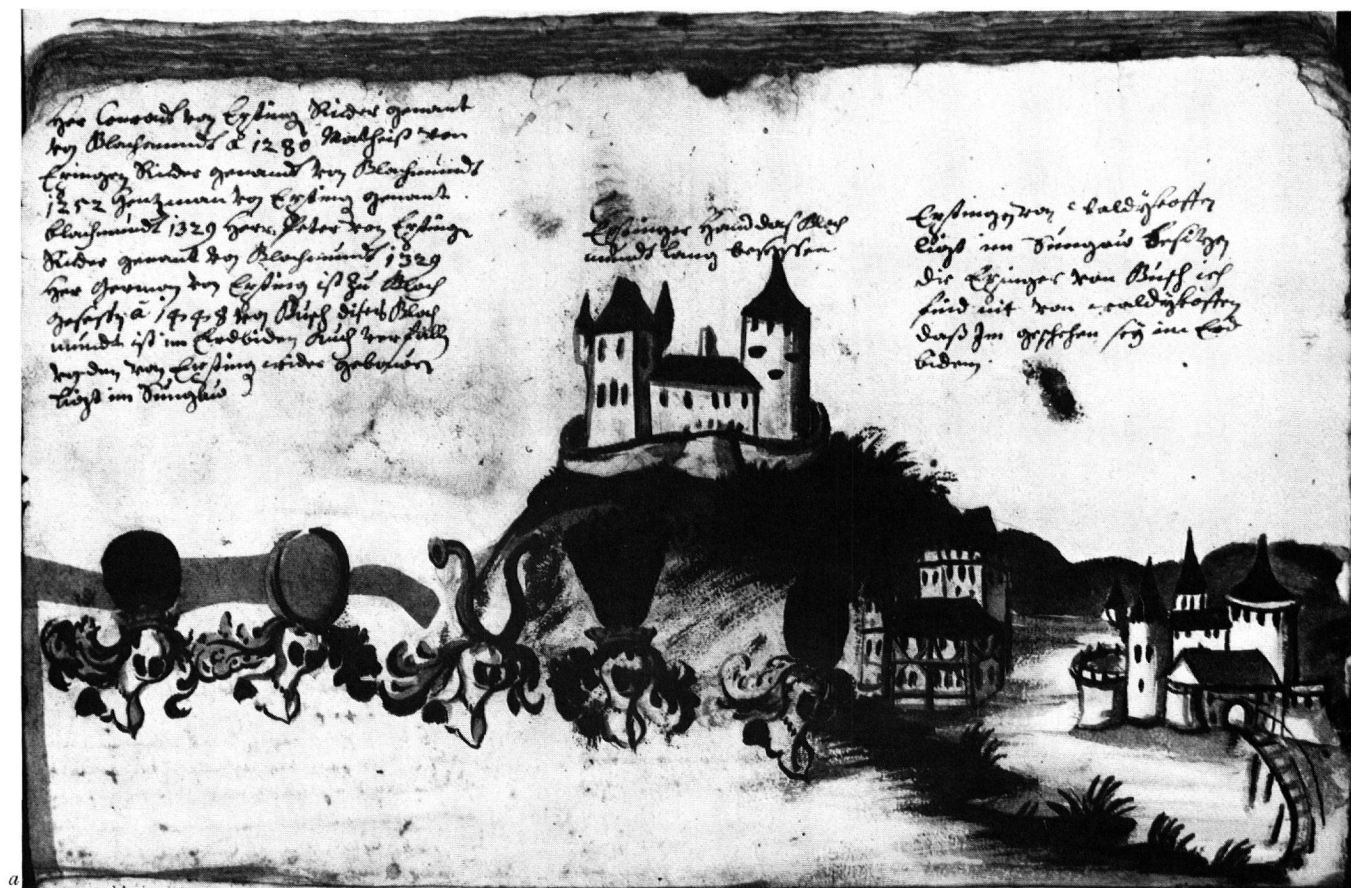 Her Conradt von Eptingen Ritter genant
von Blochmundt a 1280 Matheiß von
Eptingen Ritter genandt von Blochmundt
1252 Hentzman von Epting genant
Blochmundt 1329 Herr Peter von Epting
Ritter genant von Blochmundt 1329
Her German von Epting ist zu Bloch
a 1448 von diseres Bloch
mundt ist im Erdbiden Auch verfallen
von den von Epting wider gebouwen
ligt im Sungöw
Eptinger Hand das Bloch
mundt lang besessen
Eptingen von Waldighoffen
ligt im Sungöw besitzen
die Eptinger von ich
find nit von Waldighoffen
daß Im geschehen sey im Erd
bidem
a